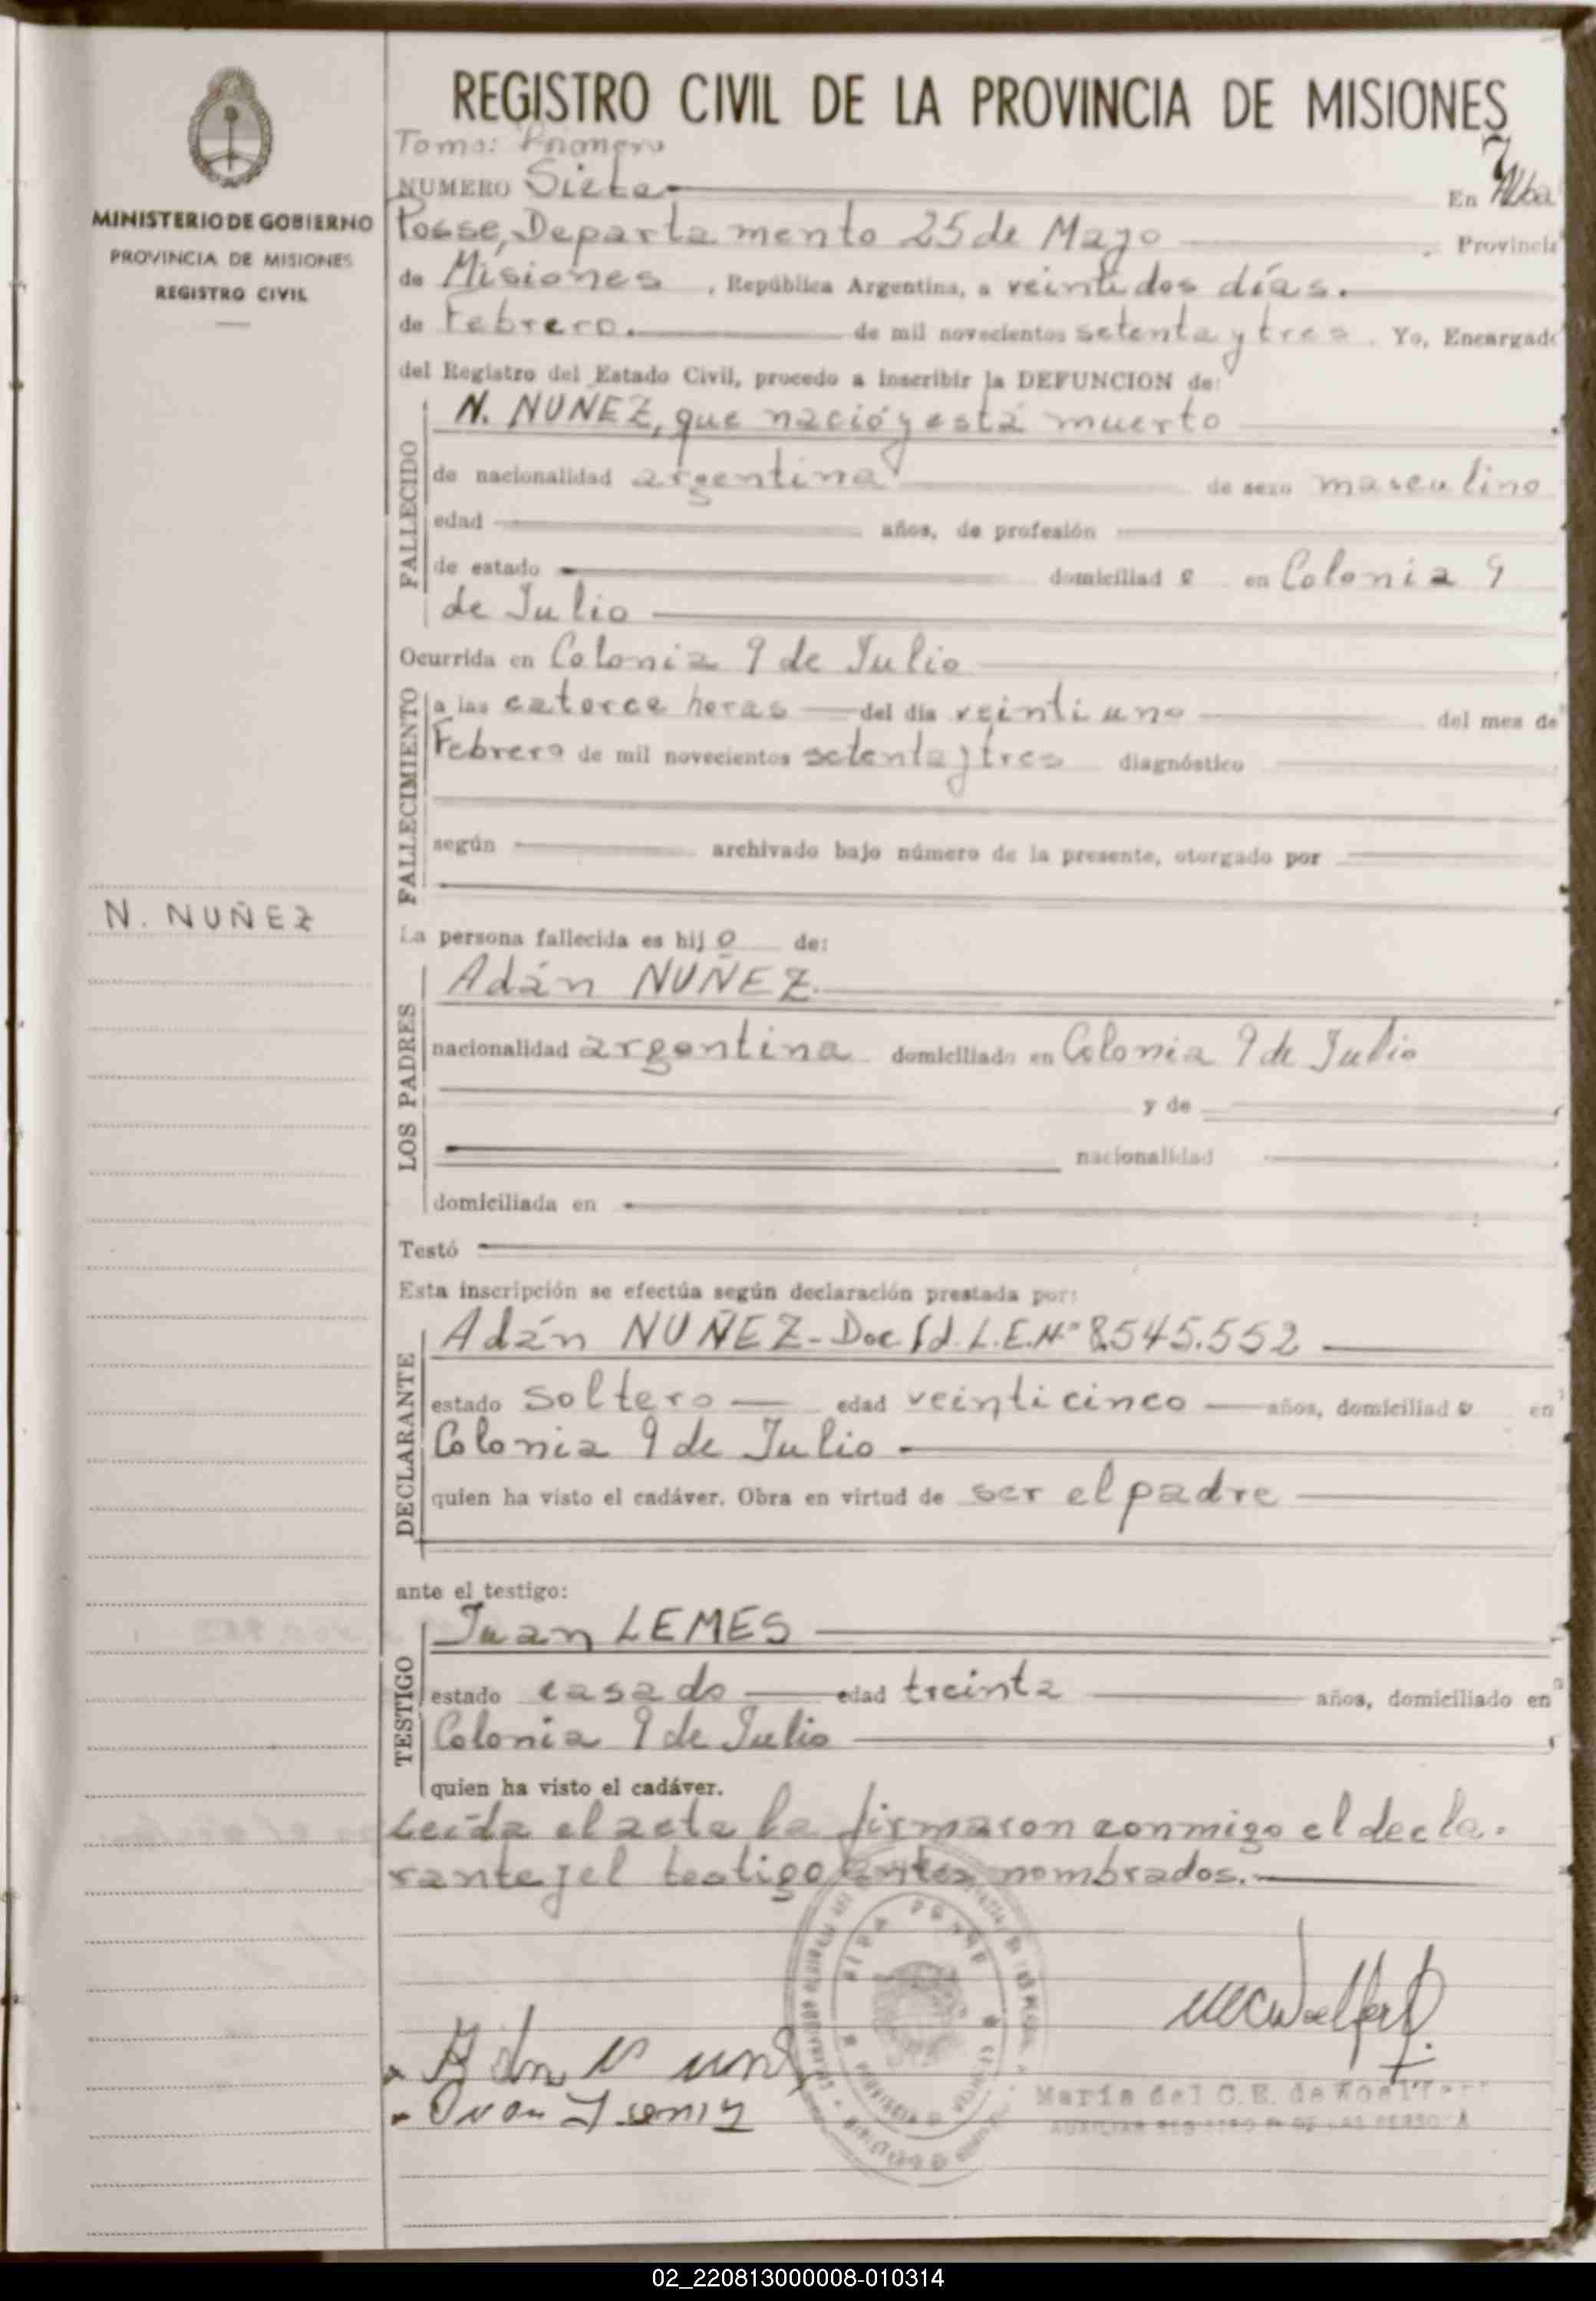 REGISTRO CIVIL DE LA PROVINCIA DE MISIONES
MINISTERIO DE GOBIERNO
PROVINCIA DE MISIONES
REGISTRO CIVIL
Tomo: Primero
7
NUMERO Siete En Alba
Posse, Departamento 25 de Mayo Provincia
de Misiones, República Argentina, a veintidos días.
de Febrero. de mil novecientos setenta y tres. Yo, Encargado
del Registro del Estado Civil, procedo a inscribir la DEFUNCION de:
FALLECIDO
N. NUÑEZ, que nació y está muerto
de nacionalidad argentina de sexo masculino
edad años, de profesión
de estado domiciliad o en Colonia 9
de Julio
Ocurrida en Colonia 9 de Julio
FALLECIMIENTO
a las catorce horas del día veintiuno del mes de
Febrero de mil novecientos setenta y tres diagnóstico
según archivado bajo número de la presente, otorgado por
N. NUÑEZ
La persona fallecida es hij o de:
LOS PADRES
Adán NUÑEZ.
nacionalidad argentina domiciliado en Colonia 9 de Julio
y de
nacionalidad
domiciliada en
Testó
Esta inscripción se efectúa según declaración prestada por:
DECLARANTE
Adán NUÑEZ - Doc Id. L.E.Nº 8.545.552
estado soltero edad veinticinco años, domiciliad o en
Colonia 9 de Julio
quien ha visto el cadáver. Obra en virtud de ser el padre
ante el testigo:
TESTIGO
Juan LEMES
estado casado edad treinta años, domiciliado en
Colonia 9 de Julio
quien ha visto el cadáver.
Leída el acta la firmaron conmigo el decla-
rante y el testigo antes nombrados.
ALBA POSSE
María del C. E. de Woelfert
AUXILIAR REGISTRO P. DE LAS PERSONA
02_220813000008-010314